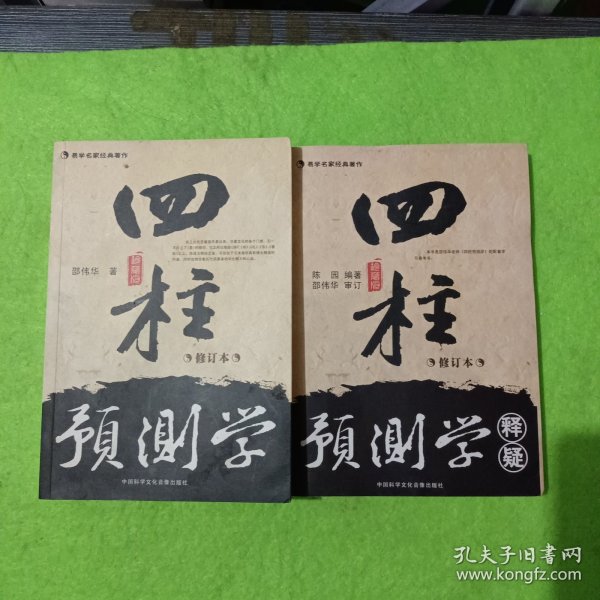 易学名家经典著作
四柱
珍藏版
邵伟华 著
修订本
預測学
中国科学文化音像出版社
易学名家经典著作
四柱
珍藏版
陈园 编著
邵伟华 审订
修订本
預測学
释疑
中国科学文化音像出版社
孔夫子旧书网
www.kongfz.com